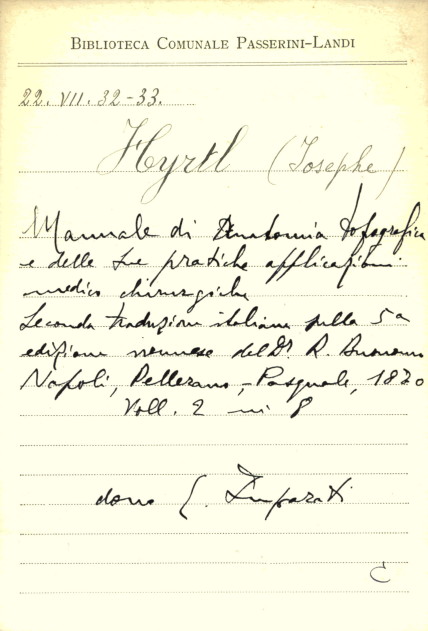 BIBLIOTECA COMUNALE PASSERINI-LANDI
22. VII. 32-33.
Hyrtl (Josephe)
Manuale di Anatomia topografica
e delle sue pratiche applicazioni
medico chirurgiche
Seconda traduzione italiana sulla 5a
edizione viennese del Dr R. Buonomo
Napoli, Pellerano, - Pasquale, 1870
Voll. 2 in 8
dono E. Imparati
C